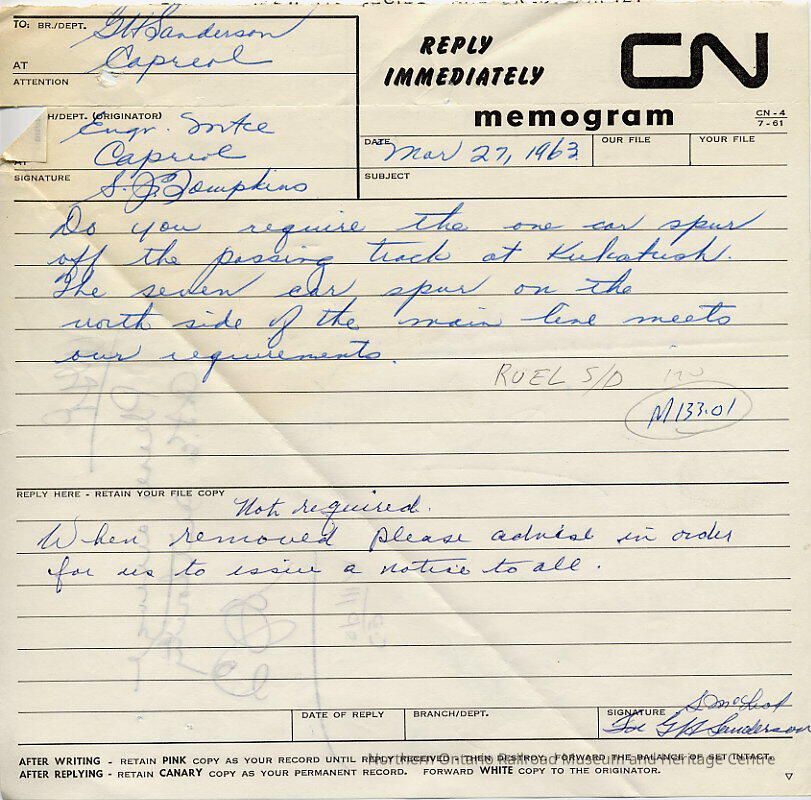 TO: BR./DEPT. G H Sanderson
AT Capreol
ATTENTION
REPLY
IMMEDIATELY
CN
memogram
CN-4
7-61
H/DEPT. (ORIGINATOR)
Engr. Mtce
AT Capreol
SIGNATURE S. J. Tompkins
DATE Mar 27, 1963
OUR FILE
YOUR FILE
SUBJECT
Do you require the one car spur
off the passing track at Kukatush.
The seven car spur on the
north side of the main line meets
our requirements.
RUEL S/D
M133.01
REPLY HERE - RETAIN YOUR FILE COPY
Not required.
When removed please advise in order
for us to issue a notice to all.
DATE OF REPLY
BRANCH/DEPT.
SIGNATURE
For GH Sanderson
AFTER WRITING - RETAIN PINK COPY AS YOUR RECORD UNTIL REPLY RECEIVED - THEN DESTROY. FORWARD THE BALANCE OF SET INTACT.
Northern Ontario Railroad Museum and Heritage Centre
AFTER REPLYING - RETAIN CANARY COPY AS YOUR PERMANENT RECORD. FORWARD WHITE COPY TO THE ORIGINATOR.